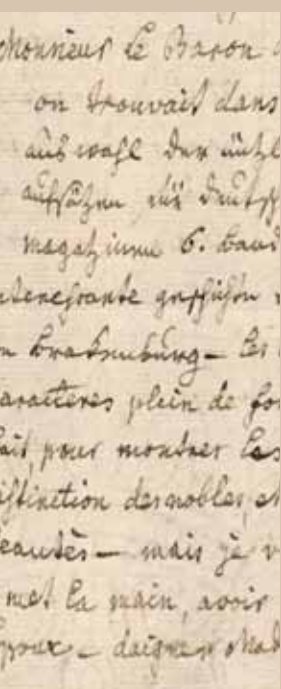 Monsieur le Baron
on trouvait dans
auswahl der nützl
aufsätzen der deutsch
magatzinne 6. band
interessante geschichte
brakenburg – les
caracteres plein de fo
fait, pour montrer les
distinction des nobles, et
beautés – mais je v
met la main, avoir
Epoux – daignes Mad